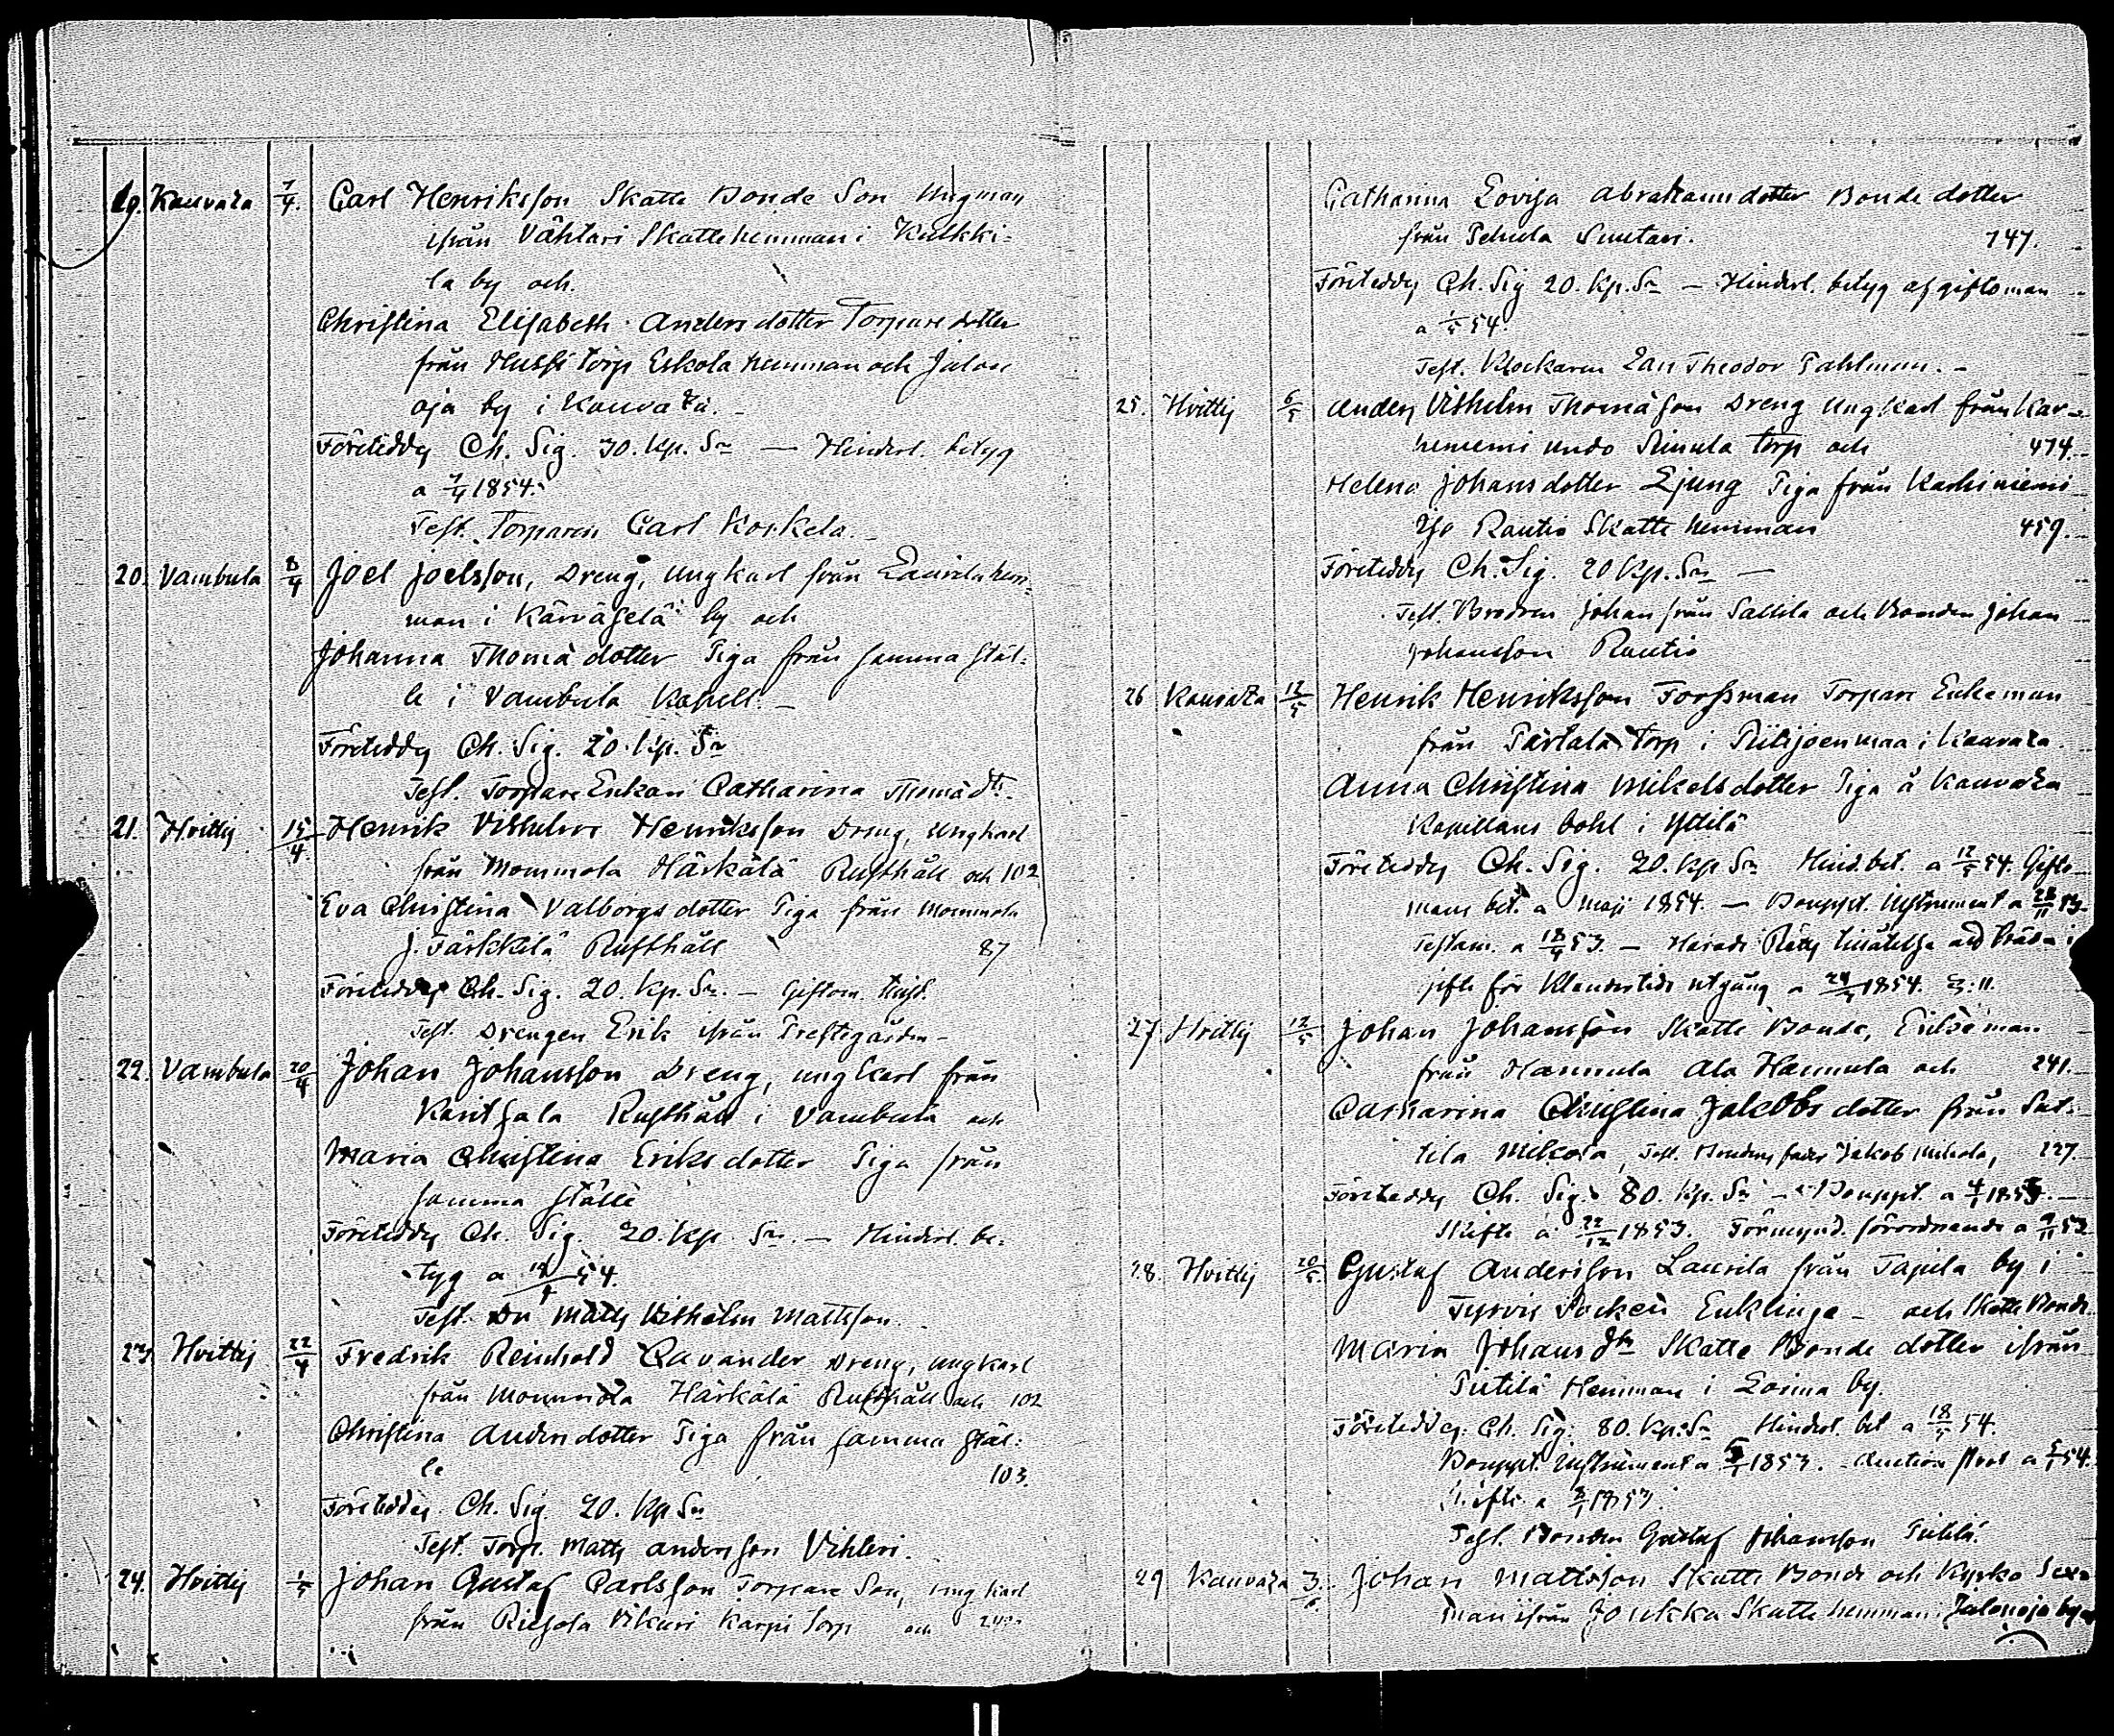 19. Kauvaza 7/4. Carl Henriksson Skatte Bonde Son Ungman
ifrån Vähtari Skattehemman i Kulkki-
la by och.
Christina Elisabeth Andersdotter Torpare dotter
från Hussi torp Eskola hemman och Jalon
oja by i Kauvaza. -
Företeddes Ch. Sig. 30. Kp. Sr — Hinderl. betyg
a 7/4 1854.
Test. Torparen Carl Korkela. -
20. Vambula 8/4 Joel Joelsson, Dreng, Ungkarl från Laurila hem-
man i Kärväselä by och
Johanna Thomä dotter Piga från samma stäl-
le i Vambula Kapell. -
Företeddes Ch. Sig. 20. Kp. Sr
Test. Torpare Enkan Catharina Thomä dtr.
21. Hvittis 15/4. Henrik Vilhelm Henriksson Dreng, Ungkarl
från Mommola Härkälä Rusthåll och 102
Eva Christina Valborgs dotter Piga från Mommola
J. Färkkilä Rusthåll 87
Företeddes Ch. Sig. 20. Kp. Sr. - Giftom.
Test. Drengen Erik ifrån Prestegården -
22. Vambula 20/4 Johan Johansson Dreng, ungkarl från
Karitsala Rusthåll i Vambula och
Maria Christina Eriksdotter Piga från
samma ställe
Företeddes Ch. Sig. 20. Kp. Sr. - Hinderl. be-
tyg a 18/4 54.
Test. Dr Matts Vilhelm Mattsson.
23 Hvittis 22/4 Fredrik Reinhold Cavander Dreng, ungkarl
från Mommola Härkälä Rusthåll och 102
Christina Andersdotter Piga från samma stäl-
le 103.
Företeddes Ch. Sig. 20. Kp Sr
Test. Torp. Matts Andersson Vihleri.
24. Hvittis 1/5 Johan Gustaf Carlsson Torpare Son, ungkarl
från Riesola Vikari Karpi Torp och
Catharina Lovisa Abrahams dotter Bonde dotter
från Pehula Suutari. 147.
Företeddes Ch. Sig 20. Kp. Sr — Hinderl. betyg af giftoman
a 1/5 54.
Test. Klockaren Carl Theodor Pahlman. -
25. Hvittis 6/5 Anders Vilhelm Thomäson Dreng Ungkarl från Kar-
hiniemi Simula torp och 474.
Helena Johans dotter Ljung Piga från Karhiniemi
Rautio Skatte hemman 459.
Företeddes Ch. Sig. 20 Kp. Sr —
Test. Brodren Johan från Sallila och Bonden Johan
Johansson Rautio
26 Kauvaza 12/5 Henrik Henriksson Forssman Torpare Enkeman
från Pärtala Torp i Piilijoenmaa i Kauvaza.
Anna Christina Mikelsdotter Piga å Kauvaza
Kapellans bohl i Yttilä
Företeddes Ch. Sig. 20. Kp Sr Hind. bet. a 12/5 54. Gifto-
mans bet. a Maji 1854. — Bouppt. Instrument a 28/11 53
Testam. a 18/4 53. - Härads Räts tillåtelse att träda i
gifte för Klandertids utgång a 24/4 1854.
27 Hvittis 12/5 Johan Johansson Skatte Bonde, Enkeman
från Hannula Ala Hannula och 241.
Catharina Christina Jakobs dotter från Sal-
lila Mikola, Test. Brudens fader Jakob Mikola, 127.
Företeddes Ch. Sig. 80. Kp. Sr - Bouppt. a
Skifte a 22/12 1853. Förmynd. förordnande a
28. Hvittis 20/5 Gustaf Andersson Laurila från Tajula by i
Tyrvis Socken Enklinge - och Skatte Bonde
Maria Johans dtr Skatte Bonde dotter ifrån
Piitilä Hemman i Loima by.
Företeddes Ch. Sig. 80. Kp. Sr Hinderl. bet a 18/5 54.
Bouppt. Instrument a 1853. - Auction prot a 54.
Skifte a 1853.
Test. Bonden Gustaf Johansson Piitilä.
29 Kauvaza 3/6 Johan Mattsson Skatte Bonde och Kyrko Sex-
man ifrån Joukka Skatte hemman i Jalonoja by